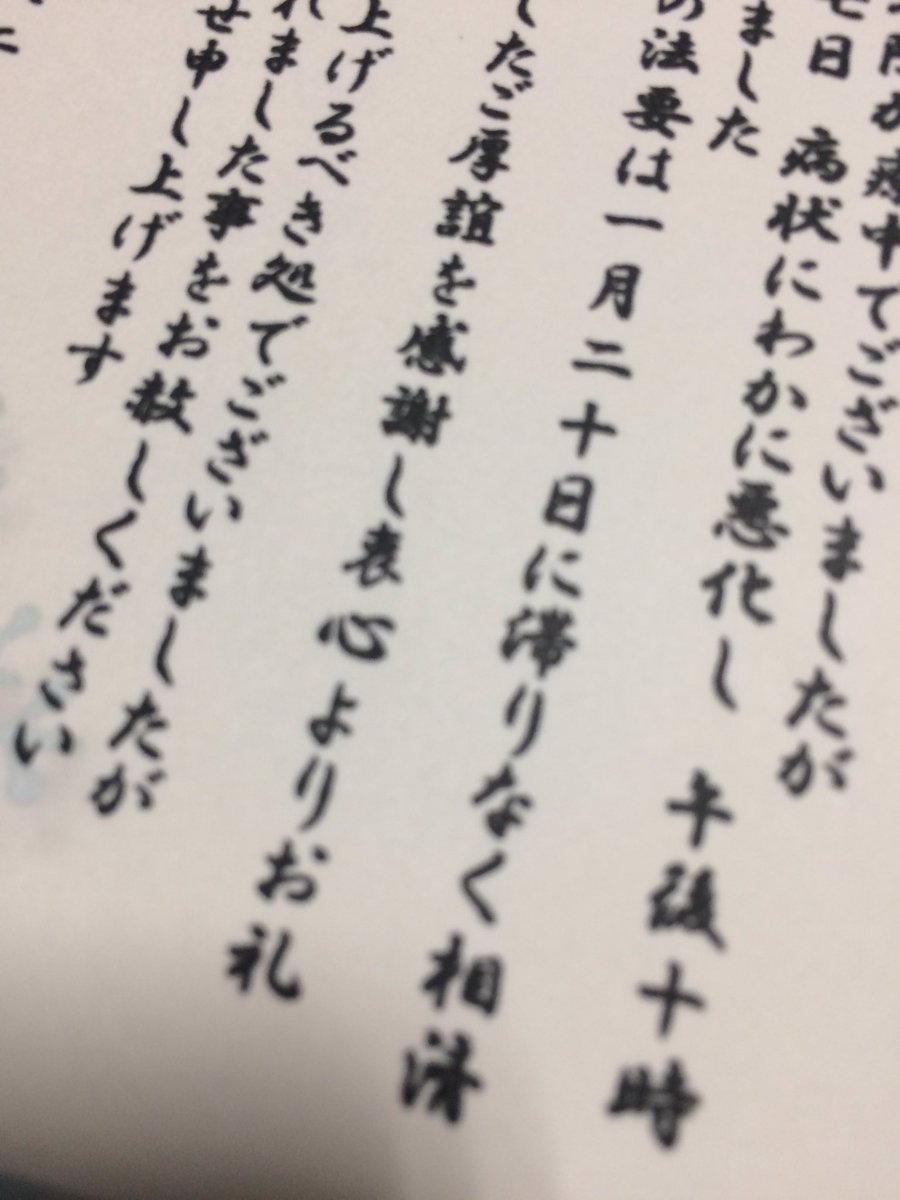 療中でございましたが
七日　病状にわかに悪化し　午後十時
ました
の法要は一月二十日に滞りなく相済
たご厚誼を感謝し衷心よりお礼
上げるべき処でございましたが
れました事をお赦しください
せ申し上げます